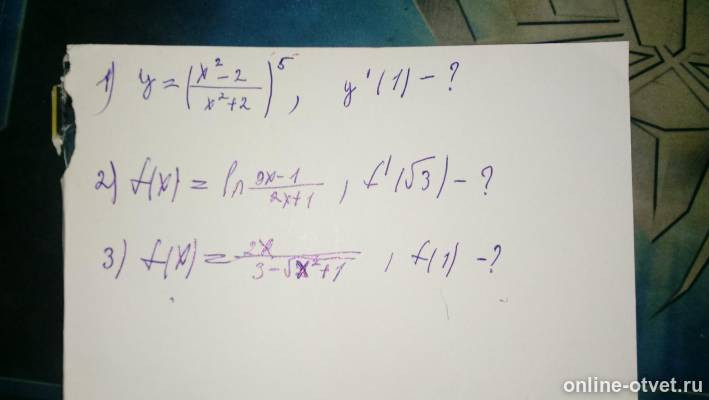 1) y = ((x² - 2)/(x² + 2))⁵, y'(1) - ?
2) f(x) = ln (2x - 1)/(2x + 1), f'(√3) - ?
3) f(x) = 2x/(3 - √x² + 1), f(1) - ?
online-otvet.ru